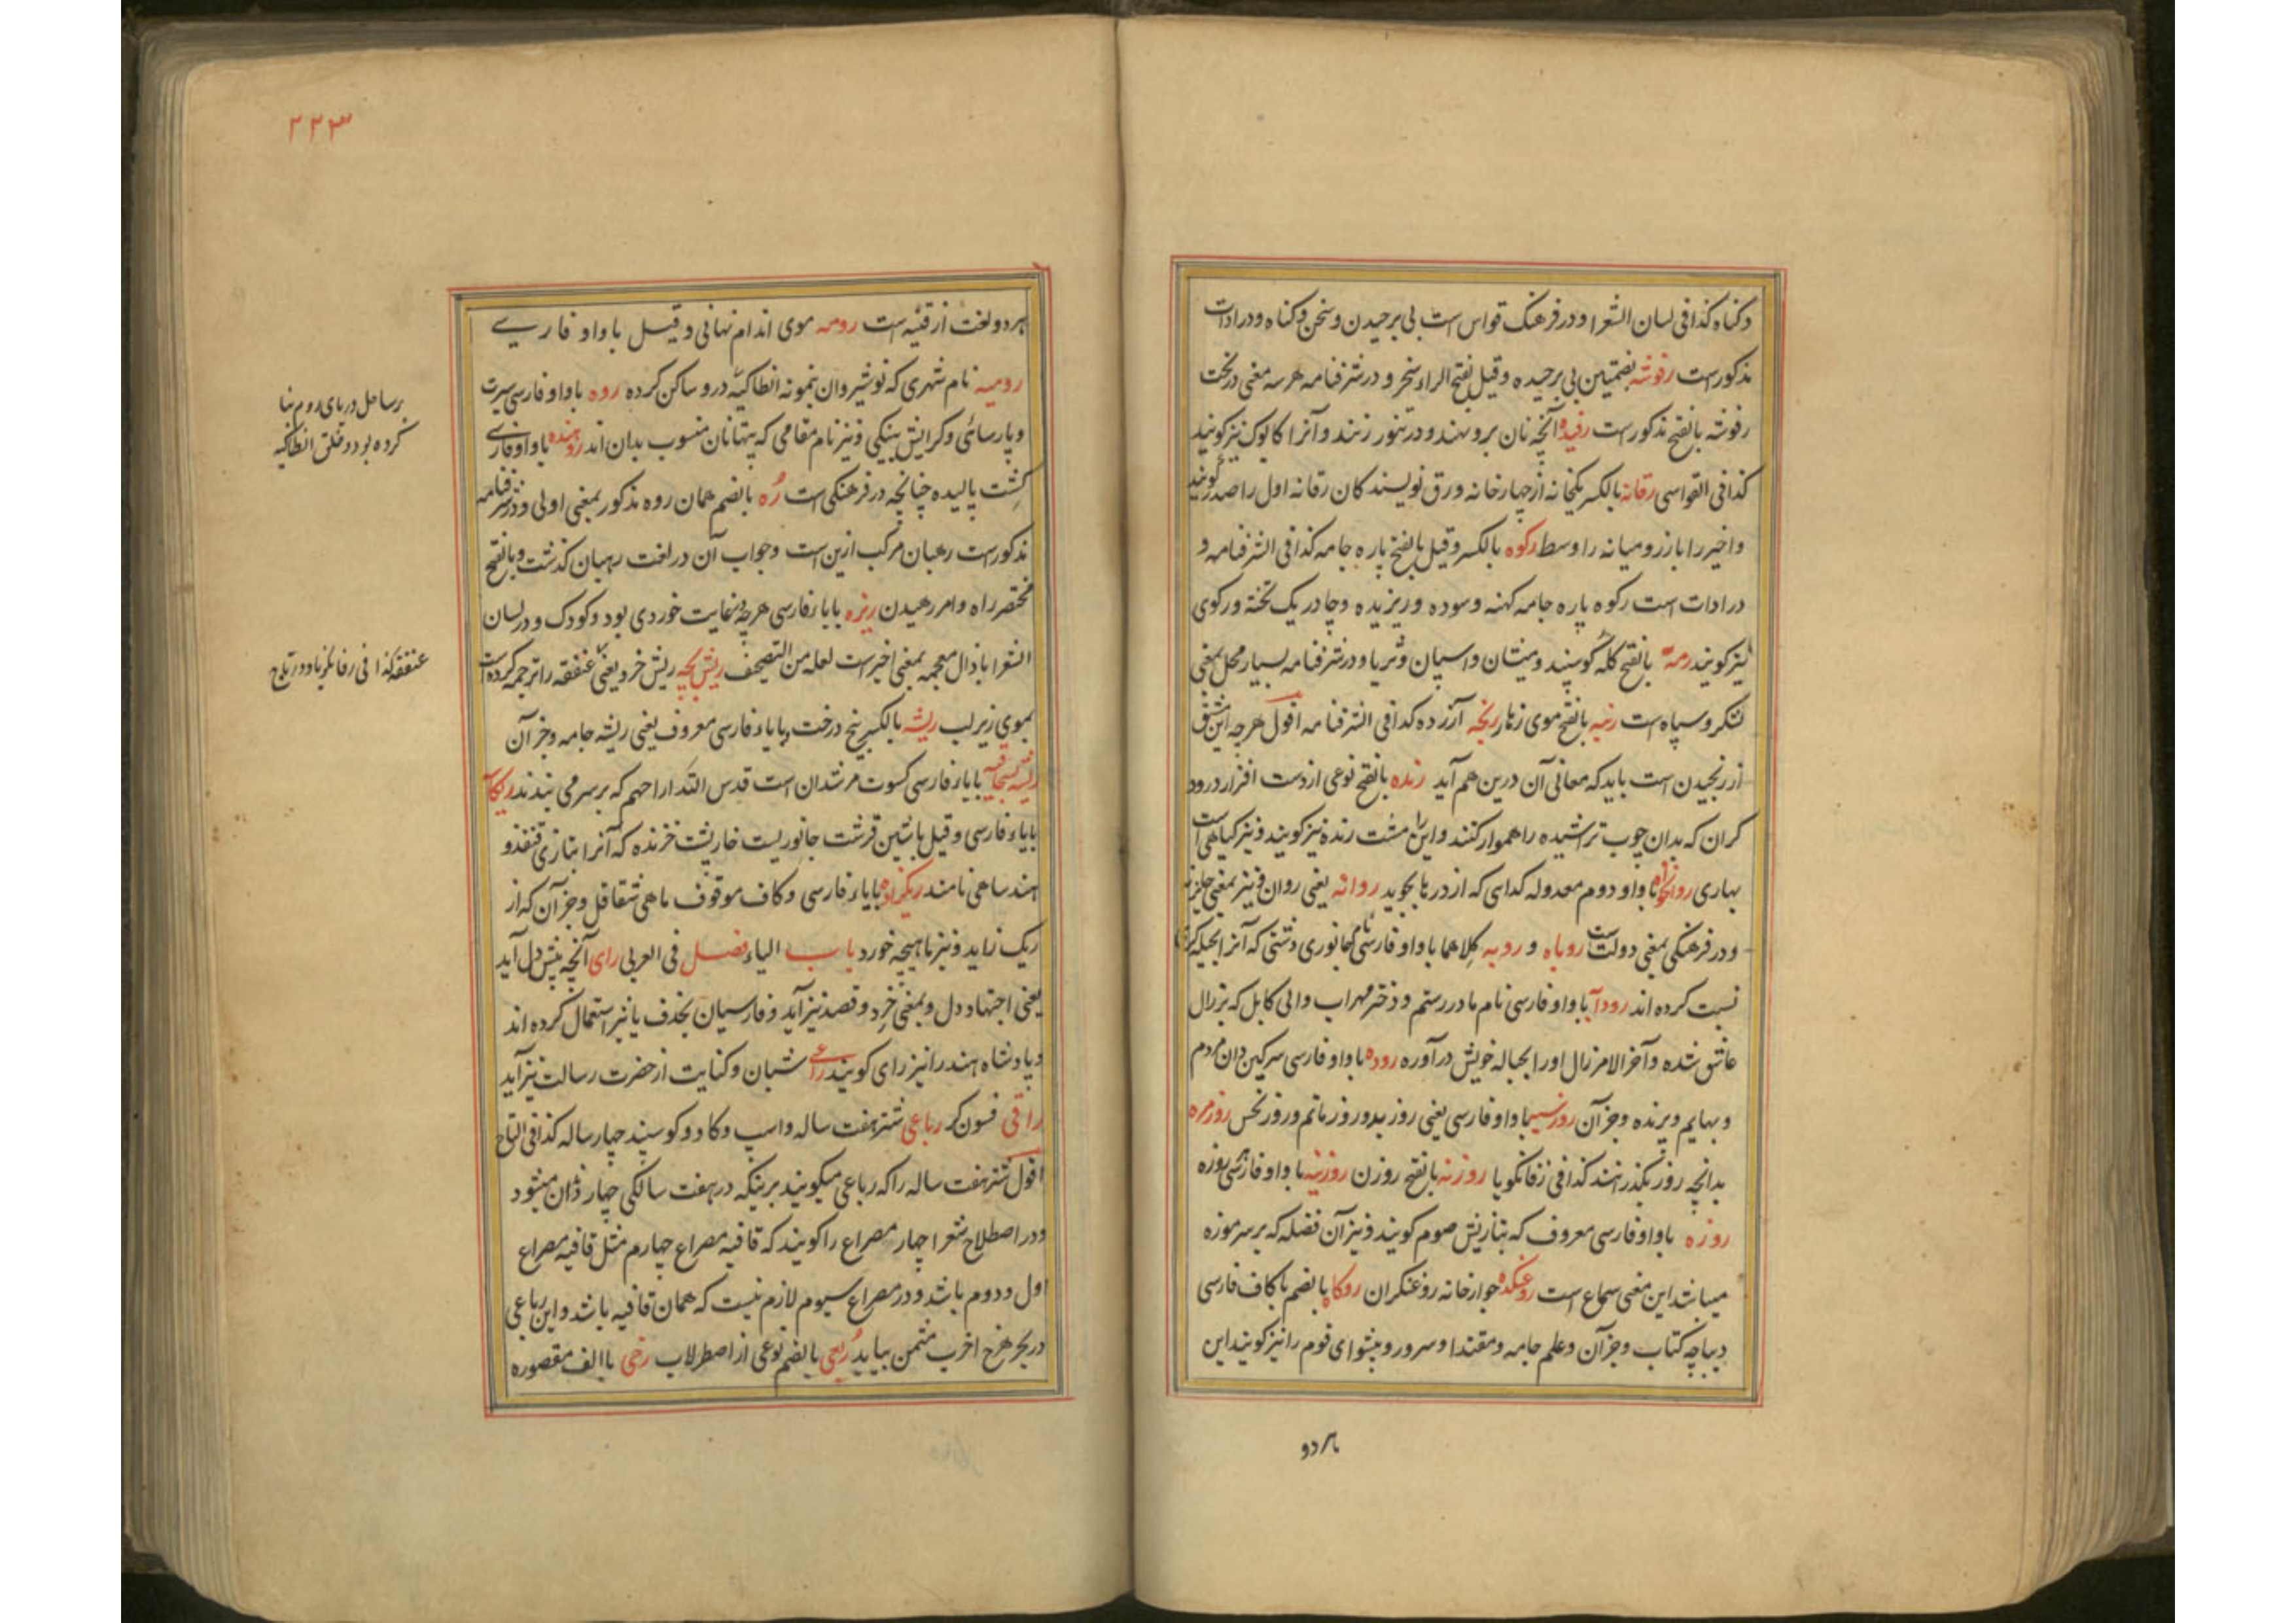 و گناه کذا فی لسان الشعرا و در فرهنگ قواس است پی بر چیدن و سخن و گناه و در ادات
مذکورست رفوشه بضمتین پی بر چیده و قیل بفتح الراء سخر و در شرفنامه هر سه معنی در لخت
رفوشه بالفتح مذکورست رفیده آنچه نان برو نهند و در تنور زنند و آنرا کابوک نیز گویند
کذا فی القواسی رقانه بالکسر یکخانه از چهار خانه ورق نویسند کان رقانه اول را صدر گویند
و اخیر را بارز و میانه را وسط رکوه بالکسر و قیل بالفتح پاره جامه کذا فی الشرفنامه و
در ادات است رکوه پاره جامه کهنه و سوده و ریزیده و چادر یک تخته و رکوی
نیز گویند رمه بالفتح گله گوسپند و میشان و اسپان و ثریا و در شرفنامه بسیار محل بمعنی
لشکر و سپاه است رنبه بالفتح موی زهار رنجه آزرده کذا فی الشرفنامه اقول هر چه این مشتق
از رنجیدن است باید که معانی آن درین هم آید رنده بالفتح نوعی از دست افزار درود
گران که بدان چوب تراشیده را هموار کنند و این را مشت رنده نیز گویند و نیز گیاهی است
بهاری روانخواه با واو دوم معدوله گدایی که از درها بجوید روانه یعنی روان و نیز بمعنی
و در فرهنگی بمعنی دولت است روباه و روبه کلاهما با واو فارسی نام جانوری دشتی که آنرا بحیله گری
نسبت کرده اند رودابه با واو فارسی نام مادر رستم و دختر مهراب والی کابل که بر زال
عاشق شده و آخر الامر زال او را بحباله خویش در آورده روده با واو فارسی سرگین دان مردم
و بهایم و پرنده و جز آن روزسیه با واو فارسی یعنی روز بد و روز ماتم و روز نحس روزمره
بدانچه روز بگذرانند کذا فی زفانگویا روزنه بالفتح روزن روزینه با واو فارسی روزه
روزه با واو فارسی معروف که بتازیش صوم گویند و نیز آن فضله که بر سر موزه
میباشد این معنی سماع است روغنکده جوازخانه روغنگران روکاه بالضم با کاف فارسی
دیباچه کتاب و جز آن و علم جامه و مقتدا و سرور و پیشوای قوم را نیز گویند این
هر دو
۲۲۳
هر دو لغت از قنیه است رومه موی اندام نهانی و قیل با واو فارسی
رومیه نام شهری که نوشیروان بنمونه انطاکیه درو ساکن کرده روه با واو فارسی سیرت
و پارسائی و گرایش بنیکی و نیز نام مقامی که پتهانان منسوب بدان اند با واو فارسی
گشت پالیده چنانچه در فرهنگی است ره بالضم همان روه مذکور بمعنی اولی و در شرفنامه
مذکورست رهبان مرکب ازین است و جواب آن در لغت رهبان گذشت و بالفتح
مختصر راه و امر رهیدن ریزه بیاء فارسی هر چه بغایت خوردی بود و کودک و در لسان
الشعرا با ذال معجمه بمعنی اخیرست لعله من التصحیف ریش بچه ریش خرد یعنی عنفقه را ترجمه کرده است
بموی زیر لب ریشه بالکسر بیخ درخت و بیاء فارسی معروف یعنی ریشه جامه و جز آن
بیاء فارسی کسوت مرشدان است قدس الله ارواحهم که بر سر می بندند
بیاء فارسی و قیل باشین قرشت جانوریست خارپشت خزنده که آنرا بتازی قنفذ و
هند ساهی نامند ریگزاده بیاء فارسی و کاف موقوف ماهی شقاقل و جز آن که از
ریگ زاید و نیز ماهیچه خورد باب الیاء فصل فی العربی رای آنچه پیش دل آید
یعنی اجتهاد دل و بمعنی خرد و قصد نیز آید و فارسیان بحذف یا نیز استعمال کرده اند
و پادشاه هند را نیز رای گویند راعی شبان و کنایت از حضرت رسالت نیز آید
راقی فسون گر رباعی شتر هفت ساله و اسپ و گاو و گوسپند چهار ساله کذا فی التاج
اقول شتر هفت ساله را که رباعی میگویند برینکه در هفت سالگی چهار دندان میشود
و در اصطلاح شعرا چهار مصراع را گویند که قافیه مصراع چهارم مثل قافیه مصراع
اول و دوم باشد و در مصراع سیوم لازم نیست که همان قافیه باشد و این رباعی
در بحر هزج اخرب مثمن بیاید ربعی بالضم نوعی از اصطرلاب رحی با الف مقصوره
بر ساحل دریای روم بنا
کرده بود و خلق انطاکیه
عنفقه کذا فی زفانگویا و در تاج